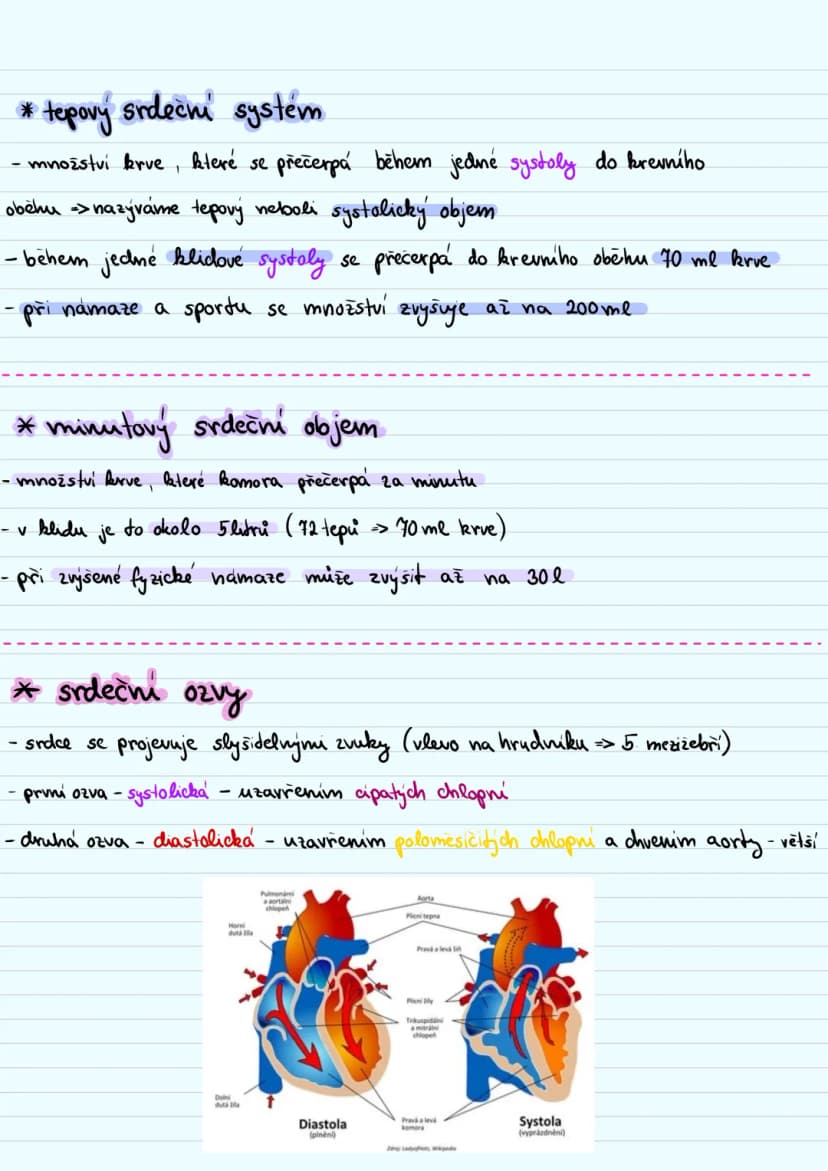 * tepový srdeční systém
- množství krve, které se přečerpá během jedné systoly do krevního
oběhu => nazýváme tepový neboli systolický objem
- během jedné klidové systoly se přečerpá do krevního oběhu 70 ml krve
- při námaze a sportu se množství zvyšuje až na 200ml
* minutový srdeční objem
- množství krve, které komora přečerpá za minutu
- v klidu je to okolo 5 litrů (72 tepů => 70 ml krve)
- při zvýšené fyzické námaze může zvýšit až na 30 l
* srdeční ozvy
- srdce se projevuje slyšidelnými zvuky (vlevo na hrudníku => 5 mezižebří)
- první ozva - systolická - uzavřením cípatých chlopní
- druhá ozva - diastolická - uzavřením poloměsíčitých chlopní a chvením aorty - větší
Pulmonární
a aortální
chlopeň
Horní
dutá žíla
Aorta
Plicní tepna
Pravá a levá síň
Plicní žíly
Trikuspidální
a mitrální
chlopeň
Dolní
dutá žíla
Pravá a levá
komora
Diastola
(plnění)
Systola
(vyprázdnění)
Zdroj: LadyofHats, Wikipedia